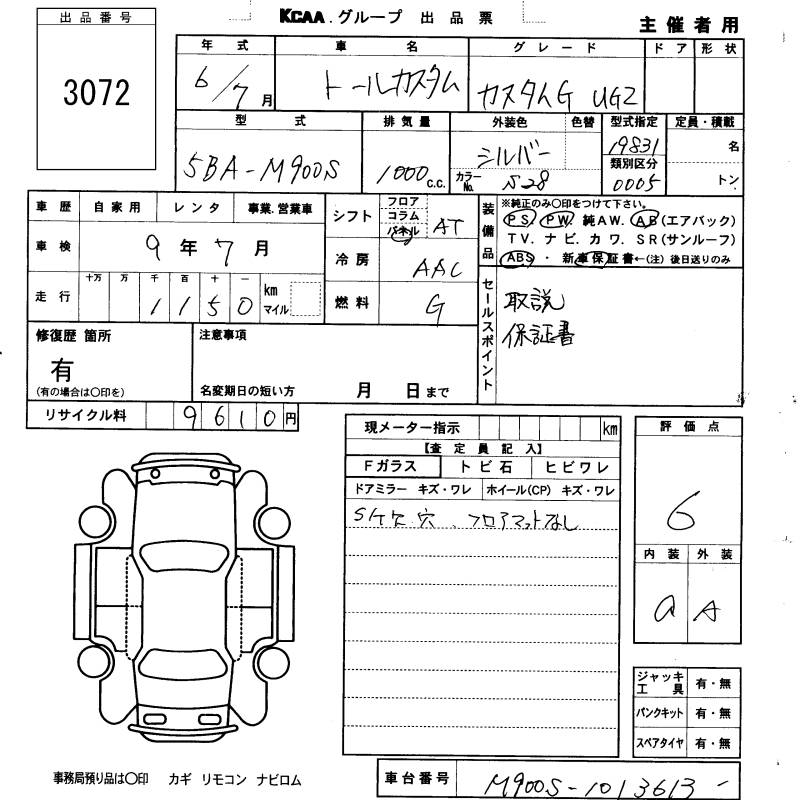 出品番号
3072
KCAA.グループ 出品票
主催者用
年式 車名 グレード ドア 形状
6/7月 トールカスタム カスタムG UGZ
型式 排気量 外装色 色替 型式指定 定員・積載
5BA-M900S 1000 c.c. シルバー カラーNo. S28 19831 名
類別区分
0005 トン
車歴 自家用 レンタ 事業.営業車
車検 9年7月
走行 十万 万 千 百 十 一 km マイル
1150
シフト フロア コラム パネル AT
冷房 AAC
燃料 G
装備品
※純正のみ○印をつけて下さい。
PS. PW. 純AW. AB(エアバック)
TV. ナビ. カワ. SR(サンルーフ)
ABS ・ 新車保証書←(注) 後日送りのみ
セールスポイント
取説
保証書
修復歴 箇所
有
(有の場合は○印を)
注意事項
名変期日の短い方 月 日まで
リサイクル料 9610円
現メーター指示 km
【査定員記入】
Fガラス トビ石 ヒビワレ
ドアミラー キズ・ワレ ホイール(CP) キズ・ワレ
Sケ欠 穴、フロアマットなし
評価点
6
内装 外装
a A
ジャッキ工具 有・無
パンクキット 有・無
スペアタイヤ 有・無
事務局預り品は○印 カギ リモコン ナビロム
車台番号 M900S-1013613